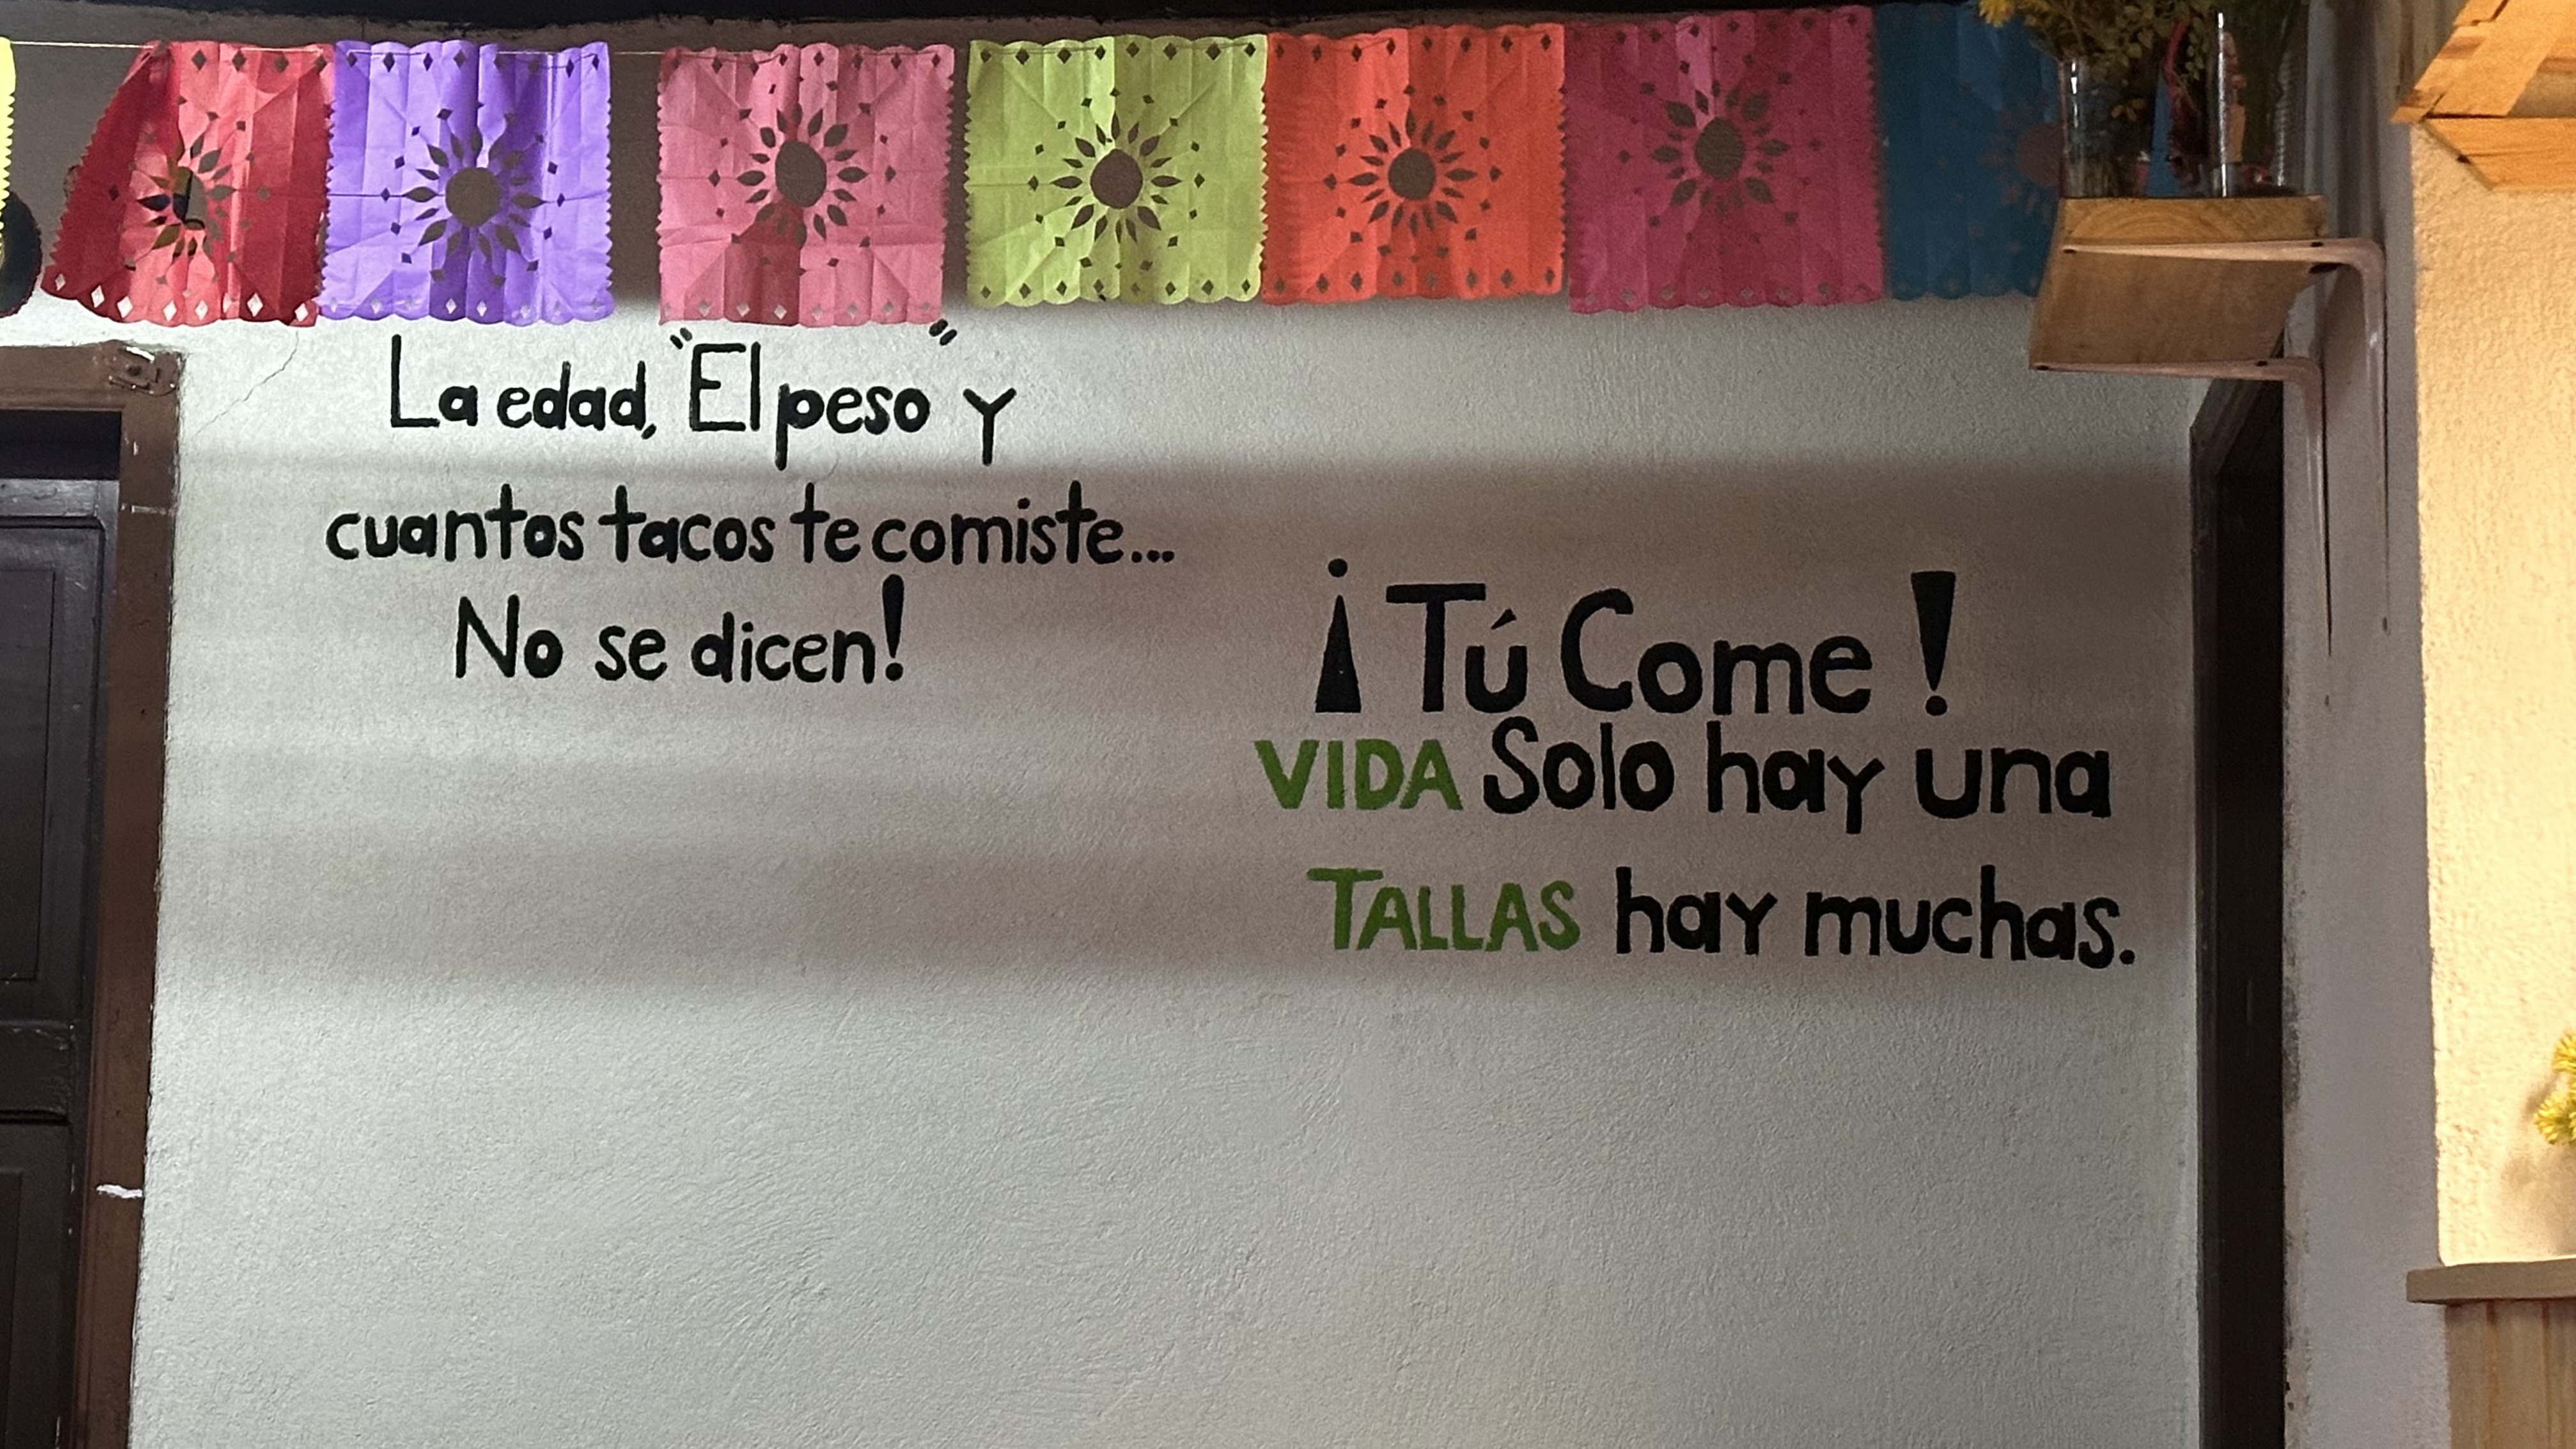 La edad, "El peso" y
cuantos tacos te comiste...
No se dicen!
¡Tú Come!
VIDA Solo hay una
TALLAS hay muchas.